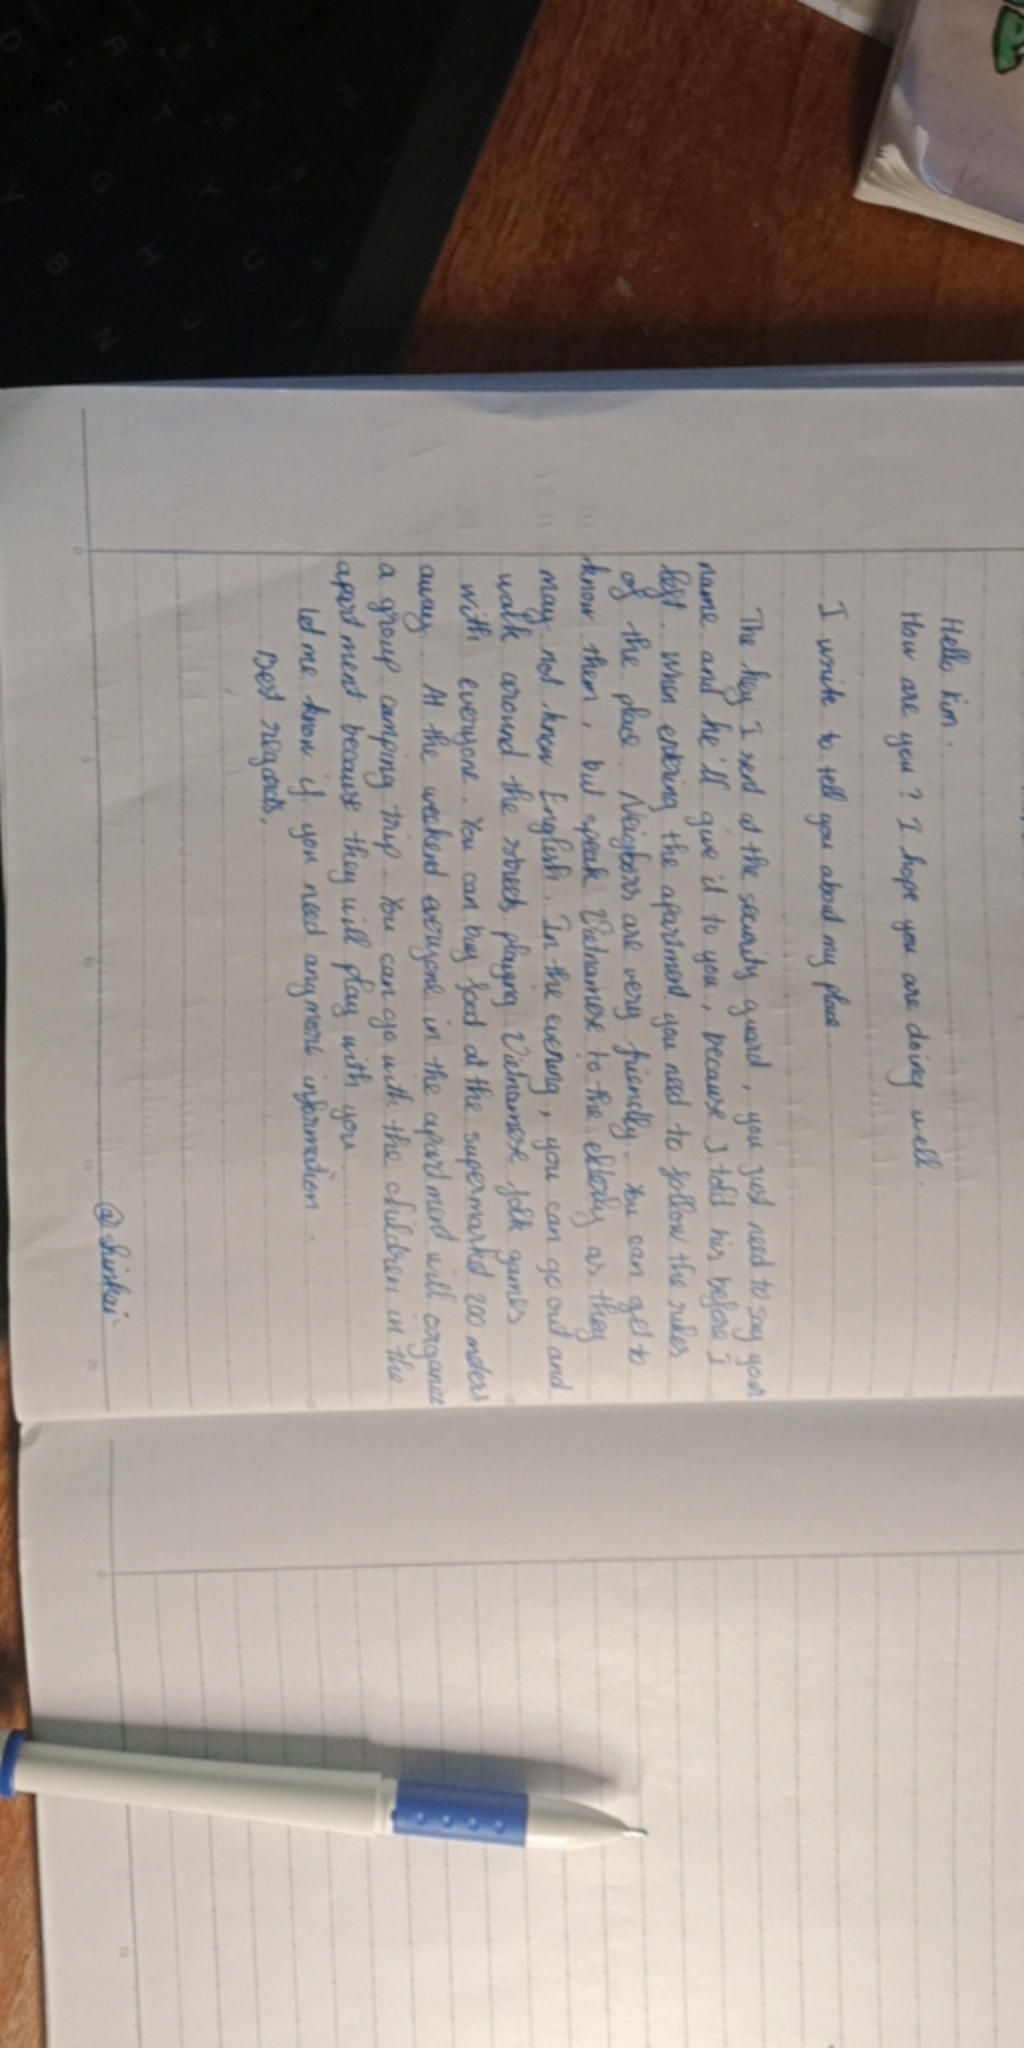 Hello Kim.
How are you? I hope you are doing well.
I write to tell you about my place.
The key I send at the security guard, you just need to say your
name and he'll give it to you, because I told his before I
left. When entering the apartment you need to follow the rules
of the place. Neighbors are very friendly. You can get to
know them, but speak Vietnamese to the elderly as they
may not know English. In the evening, you can go out and
walk around the streets, playing Vietnamese folk games
with everyone. You can buy food at the supermarket 200 meters
away. At the weekend everyone in the apartment will organize
a group camping trip. You can go with the children in the
apartment because they will play with you.
Let me know if you need any more information.
Best regards,
@shinkai